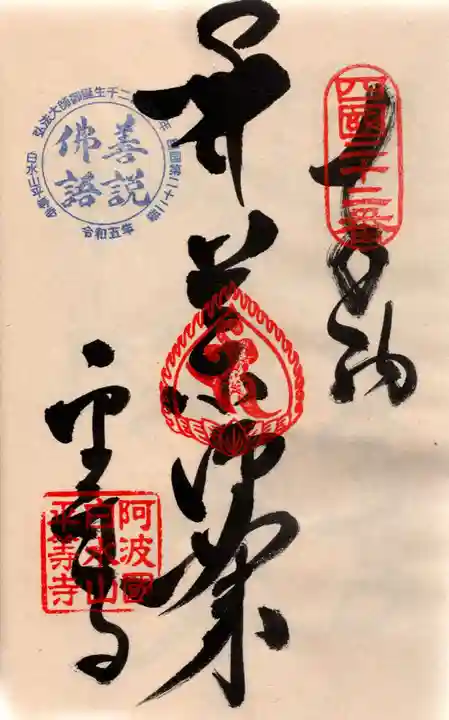 奉納
四國二十二番
本尊薬師如来
平等寺
阿波國
白水山
平等寺
善説
佛語
弘法大師御誕生千二百五十年
四国第二十二番
白水山平等寺
令和五年